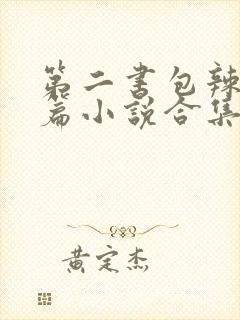 第二书包辣
篇小说合集
黄定杰